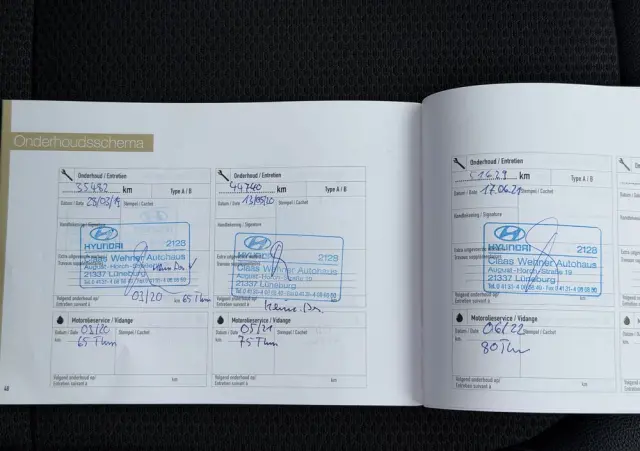 Onderhoudsschema
Onderhoud / Entretien
35482 km
Type A / B
Datum / Date 28/03/19 Stempel / Cachet
Handtekening / Signature
HYUNDAI 2128
Claas Wehner Autohaus
August-Horch-Straße 19
21337 Lüneburg
Volgend onderhoud op/
Entretien suivant à
03/20 km 65 Tkm
Motorolieservice / Vidange
Datum / Date 03/20 Stempel / Cachet
km 65 Tkm
Volgend onderhoud op/
Entretien suivant à km
48
Onderhoud / Entretien
44740 km
Type A / B
Datum / Date 13/05/20 Stempel / Cachet
Handtekening / Signature
2128
Claas Wehner Autohaus
21337 Lüneburg
Volgend onderhoud op/
Entretien suivant à
Motorolieservice / Vidange
Datum / Date 05/21 Stempel / Cachet
km 75 Tkm
Volgend onderhoud op/
Entretien suivant à km
Onderhoud / Entretien
51629 km
Type A / B
Datum / Date 17.06.21 Stempel / Cachet
Handtekening / Signature
HYUNDAI 2128
Claas Wehner Autohaus
August-Horch-Straße 19
21337 Lüneburg
Volgend onderhoud op/
Entretien suivant à km
Motorolieservice / Vidange
Datum / Date 06/22 Stempel / Cachet
km 80 Tkm
Volgend onderhoud op/
Entretien suivant à km